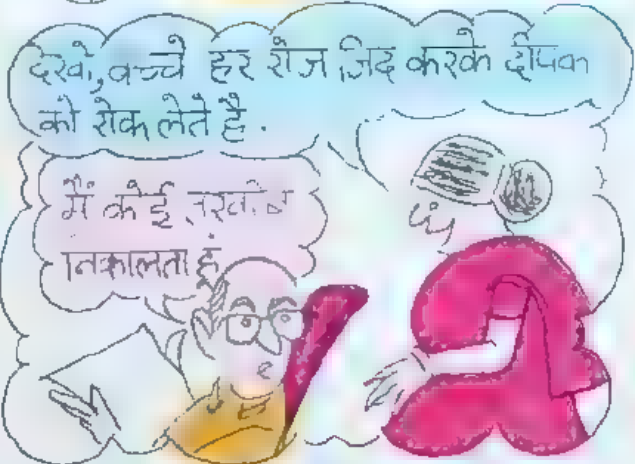 देखो, बच्चे हर रोज जिद करके दीपक
को रोक लेते है.
मैं कोई
निकालता हूं